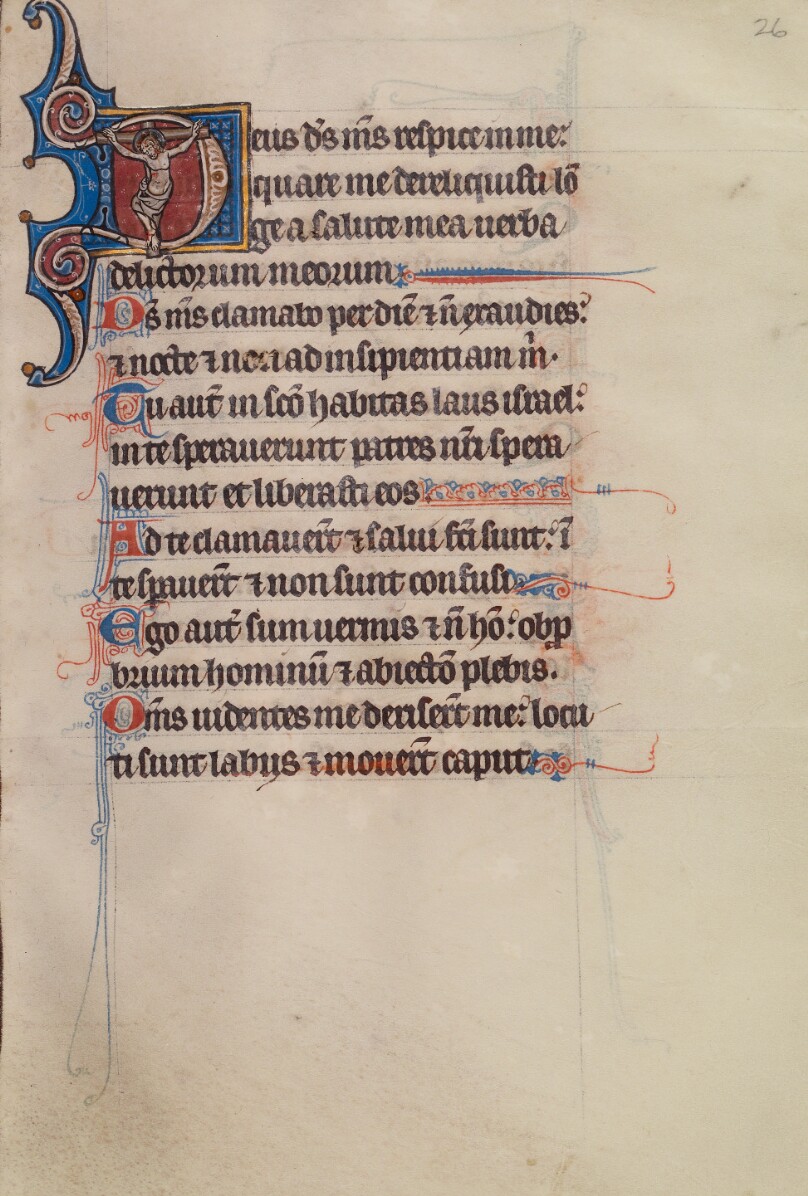 26
Deus d̅s m̅s respice in me:
quare me dereliquisti lo̅
ge a salute mea uerba
delictorum meorum
D̅s m̅s clamabo per die̅ ⁊ n̅ exaudies:
⁊ nocte ⁊ non ad insipientiam m̅.
Tu aut̅ in sc̅o habitas laus israel:
in te sperauerunt patres nr̅i spera
uerunt et liberasti eos
Ad te clamauer̅t ⁊ salui fc̅i sunt: i̅
te sꝑauer̅t ⁊ non sunt confusi
Ego aut̅ sum uermis ⁊ n̅ ho̅: obp
brium hominu̅ ⁊ abiecto̅ plebis.
Om̅s uidentes me deriser̅t me: locu
ti sunt labijs ⁊ mouer̅t caput